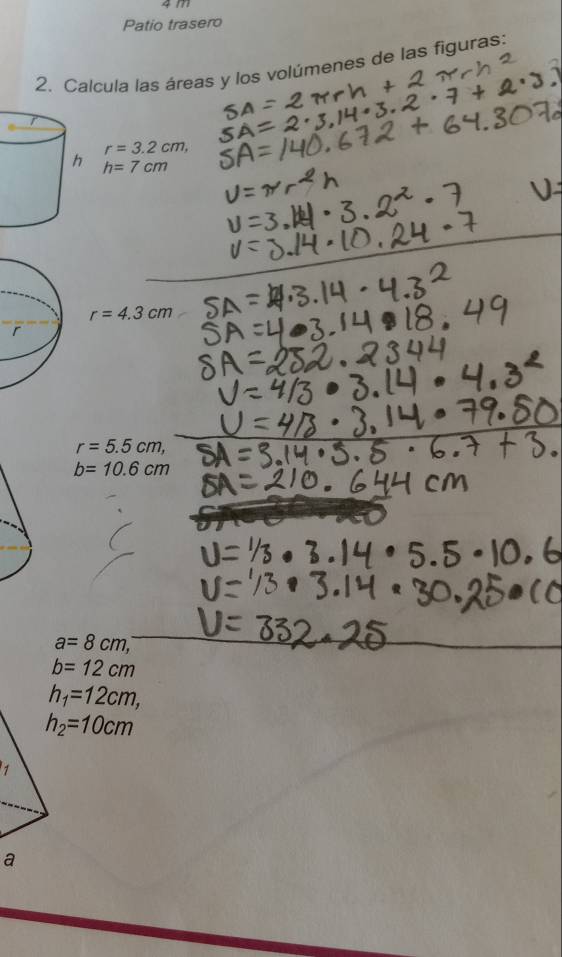 4 m
Patio trasero
2. Calcula las áreas y los volúmenes de las figuras:
r
h
r = 3.2 cm,
h= 7 cm
SA = 2πrh + 2πrh²
SA = 2·3.14·3.2·7 + 2·3.1
SA = 140.672 + 64.307
V = πr²h
V = 3.14·3.2²·7
V = 3.14·10.24·7
V=
r
r = 4.3 cm
SA = 4·3.14·4.3²
SA = 4·3.14·18.49
SA = 232.2344
V = 4/3·3.14·4.3²
V = 4/3·3.14·79.50
r = 5.5 cm,
b= 10.6 cm
SA = 3.14·5.5·6.7+3.
SA = 210.644 cm
V = 1/3·3.14·5.5·10.6
V = 1/3·3.14·30.25·10
V = 332.25
a= 8 cm,
b= 12 cm
h₁=12cm,
h₂=10cm
1
a